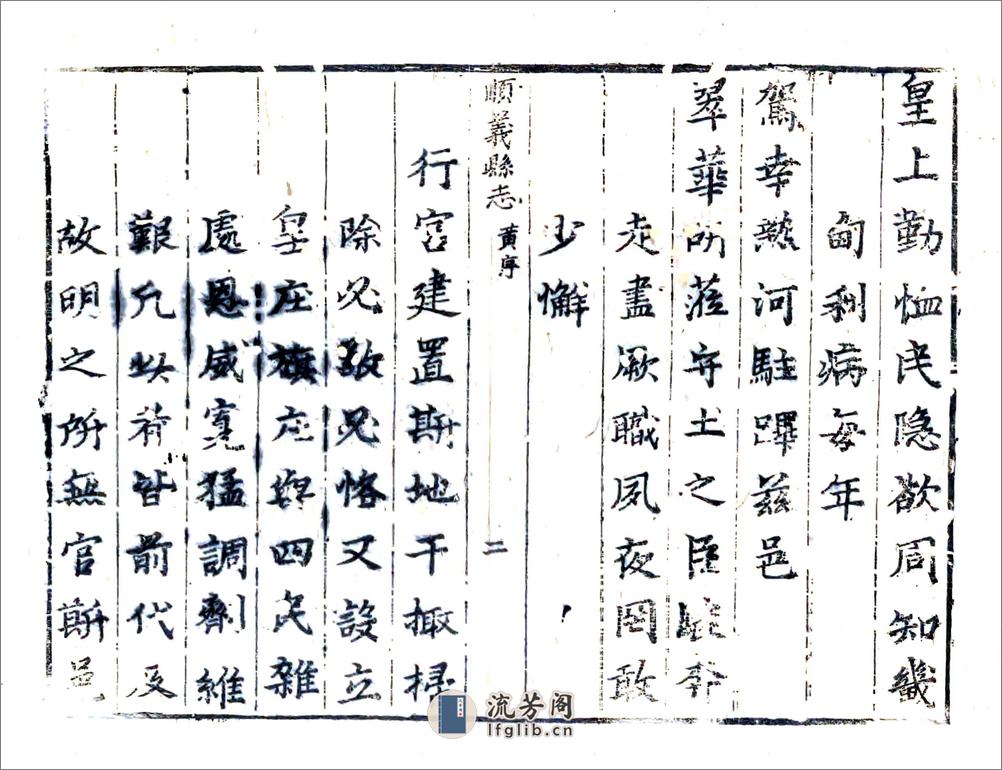 皇上勤恤民隐欲周知畿
甸利病每年
駕幸熱河駐蹕兹邑
翠華所蒞守土之臣奔
走盡厥職夙夜罔敢
少懈
順義縣志
黄序
二
行宫建置斯地干掫掃
除必敬必恪又設立
皇庄旗庄與四民雜
處恩威寬猛調劑維
艱凡此者皆前代及
故明之所無官斯邑
流芳阁
lfglib.cn